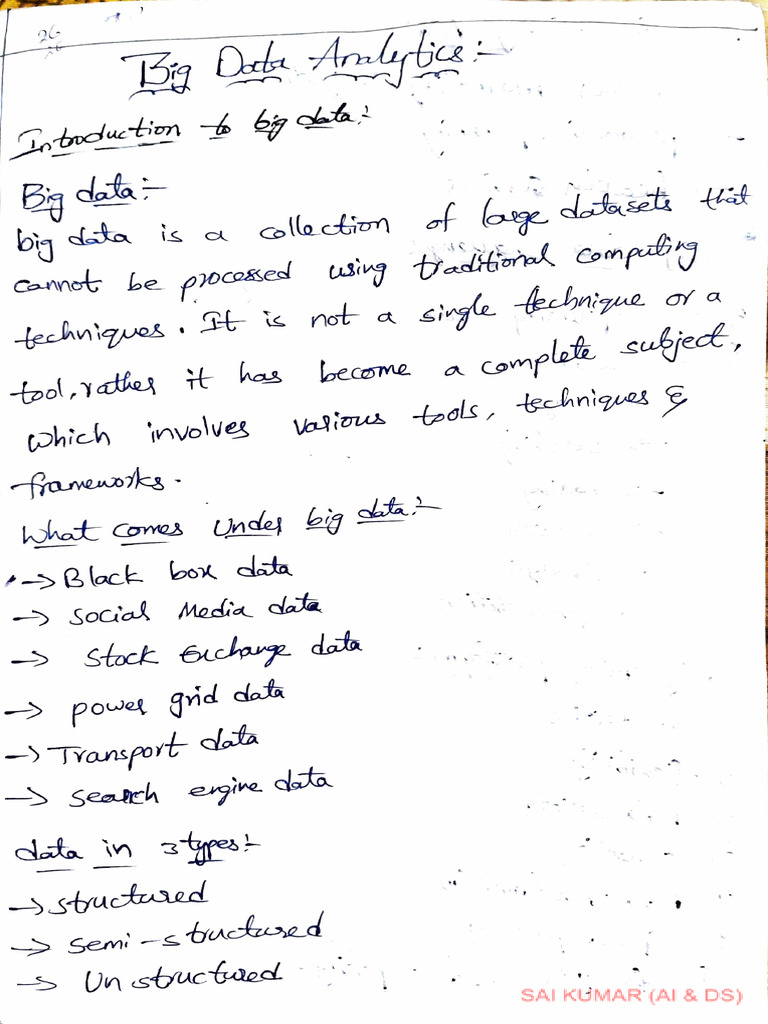 26
Big Data Analytics:-
Introduction to big data:-
Big data:-
big data is a collection of large datasets that
cannot be processed using traditional computing
techniques. It is not a single technique or a
tool, rather it has become a complete subject,
which involves various tools, techniques &
frameworks.
What comes under big data:-
→ Black box data
→ Social Media data
→ Stock Exchange data
→ power grid data
→ Transport data
→ Search engine data
data in 3 types:-
→ structured
→ semi-structured
→ Unstructured
SAI KUMAR (AI & DS)